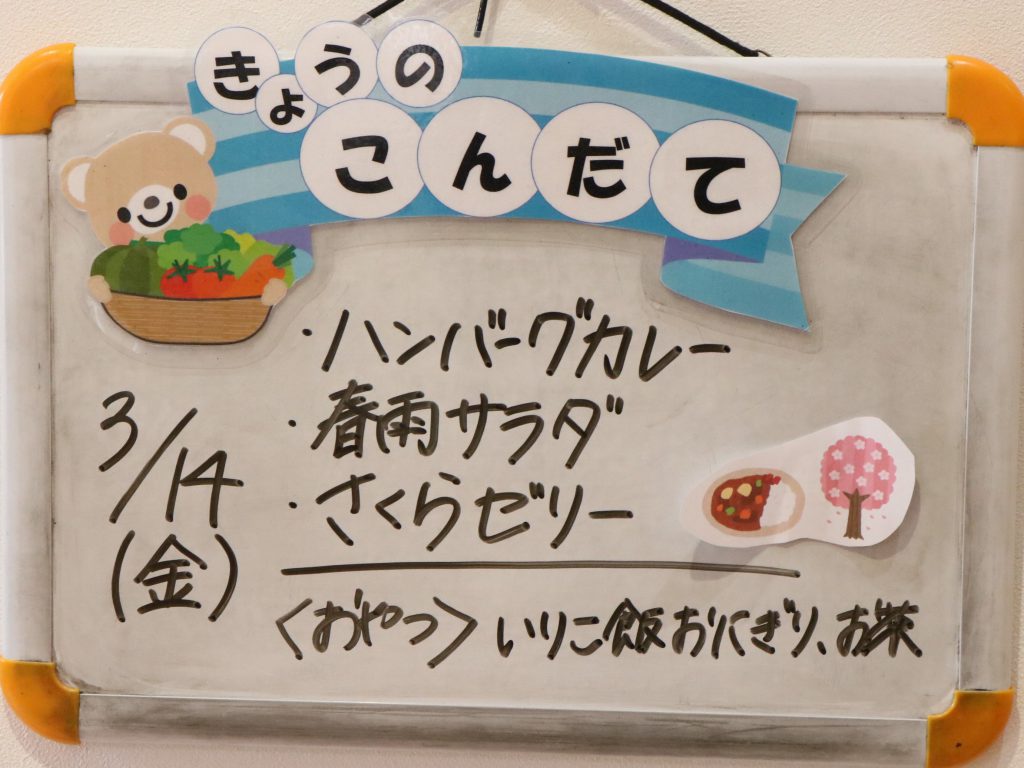 きょうの
こんだて
・ハンバーグカレー
・春雨サラダ
・さくらゼリー
3/14
(金)
〈おやつ〉いりこ飯おにぎり、お茶